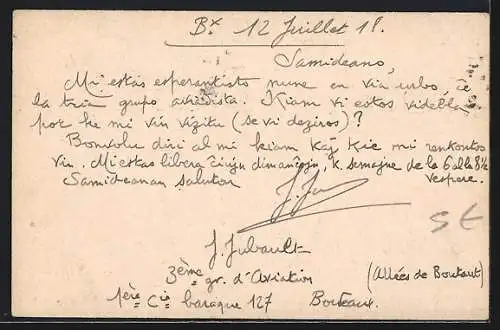 Bx 12 Juillet 18.
Samideano,
Mi estas esperantisto nune en via urbo, ĉe
la tria grupo aviadista. Kiam vi estos videbla
por ke mi vin vizitu (se vi deziros)?
Bonvolu diri al mi kiam kaj kie mi renkontos
vin. Mi estas libera ĉiujn dimanĉojn, k. semajne de la 6 al la 8½
Samideanan saluton vespere.
J. Ju
J. Jubault
3ème gr. d'Aviation
(Allées de Boutaut)
1ère Cie baraque 127 Bordeaux.
5 E